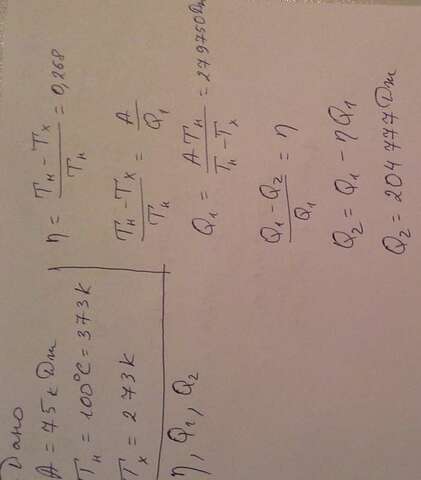 Дано
A = 75 кДж
Tн = 100°C = 373 K
Tх = 273 K
η, Q1, Q2
η = (Tн – Tх) / Tн = 0,268
(Tн – Tх) / Tн = A / Q1
Q1 = A Tн / (Tн – Tх) = 279750 Дж
(Q1 – Q2) / Q1 = η
Q2 = Q1 – ηQ1
Q2 = 204777 Дж